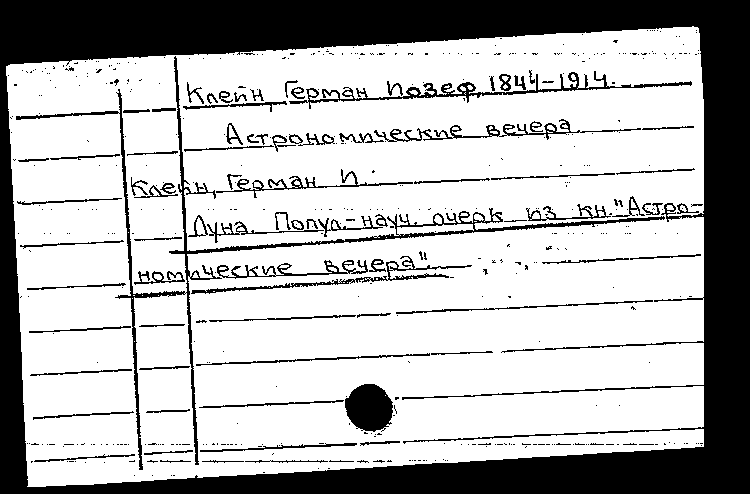 Клейн, Герман Иозеф, 1844-1914.
Астрономические вечера.
Клейн, Герман И.
Луна. Попул.-науч. очерк из кн. "Астро-
номические вечера".